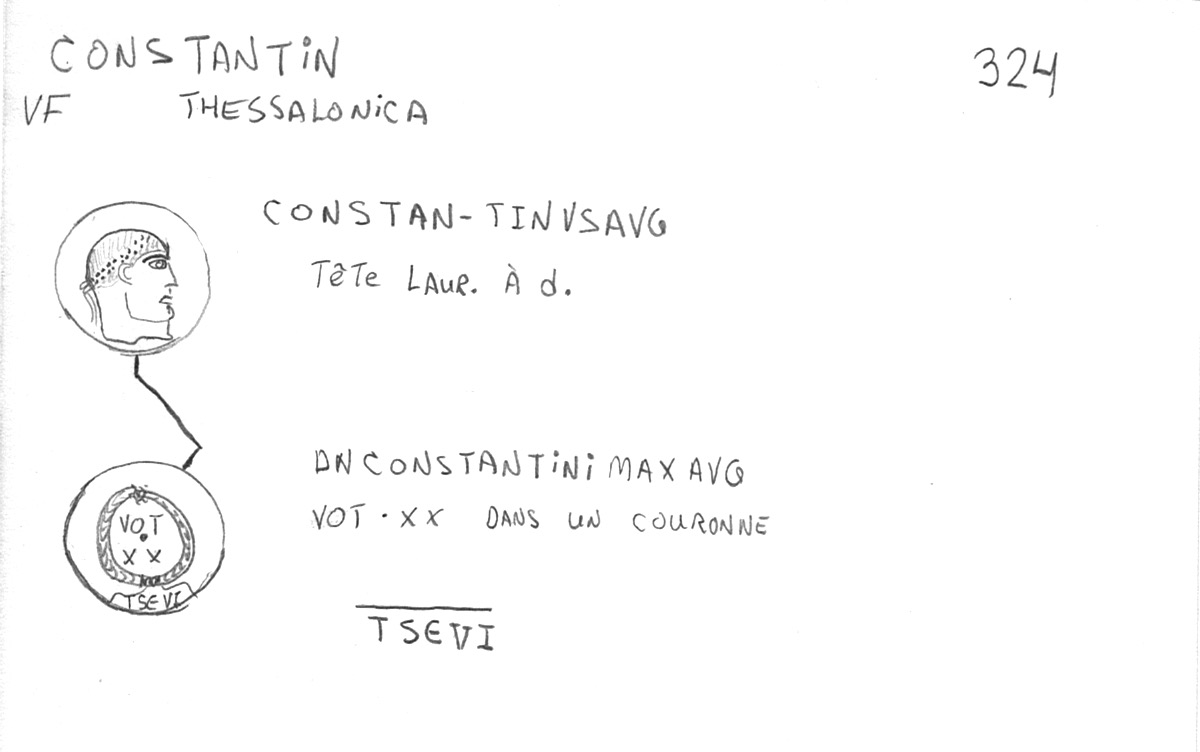 CONSTANTIN
324
VF THESSALONICA
CONSTAN-TINVSAVG
TÊTE LAUR. À d.
DNCONSTANTINI MAX AVG
VOT
•
XX
TSEVI
VOT • XX DANS UN COURONNE
TSEVI